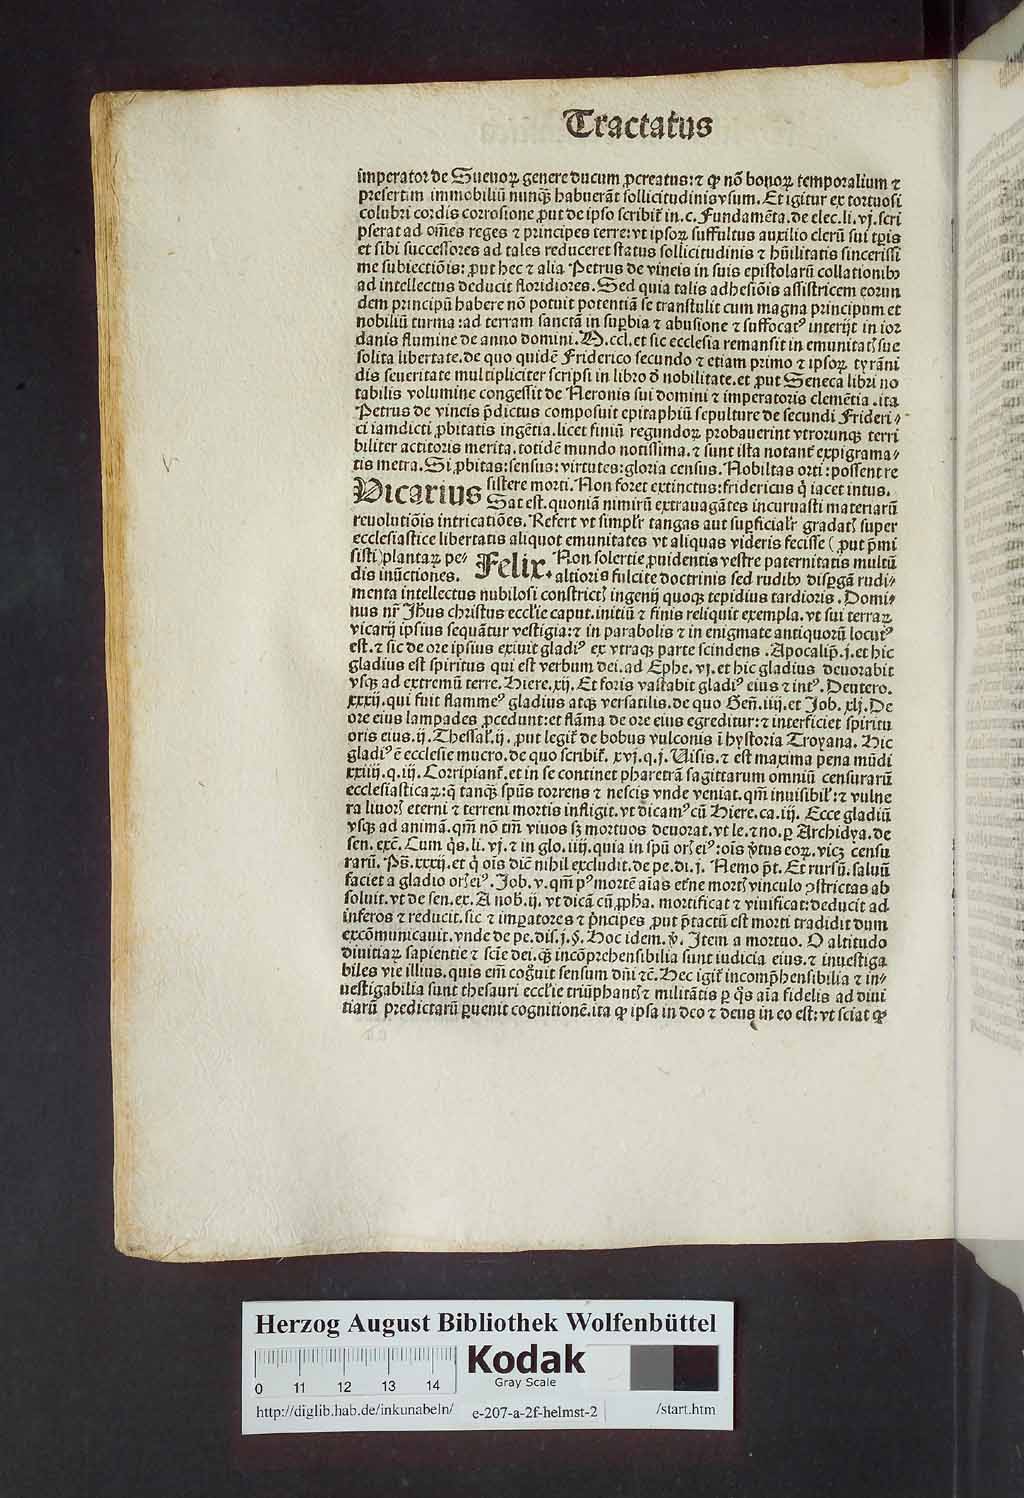 Tractatus
imperator de Sueuoꝝ genere ducum ꝓcreatus: ⁊ ꝙ nō bonoꝝ temporalium ⁊
presertim immobiliū nunqꝫ habuerāt sollicitudinis vsum. Et igitur ex tortuosi
colubri cordis corrosione ꝓut de ipso scribit̄ in. c. Fundamēta. de elec. li. vj. scri
pserat ad om̄es reges ⁊ principes terre: vt ipsoꝝ suffultus auxilio clerū sui tꝑis
et sibi successores ad tales reduceret status sollicitudinis ⁊ hūilitatis sincerissi
me subiectiōis: ꝓut hec ⁊ alia Petrus de vineis in suis epistolarū collationibꝫ
ad intellectus deducit floridiores. Sed quia talis adhesiōis assistricem eorun
dem principū habere nō potuit potentiā se transtulit cum magna principum et
nobiliū turma: ad terram sanctā in suꝑbia ⁊ abusione ⁊ suffocatꝰ interijt in ior
danis flumine de anno domini. M. ccl. et sic ecclesia remansit in emunitatꝭ sue
solita libertate. de quo quidē Friderico secundo ⁊ etiam primo ⁊ ipsoꝝ tyrāni
dis seueritate multipliciter scripsi in libro đ nobilitate. et ꝓut Seneca libri no
tabilis volumine congessit de Neronis sui domini ⁊ imperatoris clemētia. ita
Petrus de vineis p̄dictus composuit epitaphiū sepulture de secundi Frideri⸗
ci iamdicti ꝓbitatis ingētia. licet finiū regundoꝝ probauerint vtrorunqꝫ terri
biliter actitoris merita. totidē mundo notissima. ⁊ sunt ista notant̄ expigrama⸗
tis metra. Si ꝓbitas: sensus: virtutes: gloria census. Nobiltas orti: possent re
sistere morti. Non foret extinctus: fridericus q̇ iacet intus.
Vicarius Sat est. quoniā nimirū extrauagātes incuruasti materiarū
reuolutiōis intricatiōes. Refert vt simpl'r tangas aut suꝑficial'r gradatꝭ super
ecclesiastice libertatis aliquot emunitates vt aliquas videris fecisse (ꝓut p̄mi
sisti) plantaꝝ pe⸗ Felix. Non solertie ꝓuidentis vestre paternitatis multū
dis inūctiones. altioris fulcite doctrinis sed rudibꝫ disꝑgā rudi⸗
menta intellectus nubilosi constrictꝭ ingenij quoqꝫ tepidius tardioris. Domi⸗
nus nr̄ Jh̄us christus eccl'ie caput. initiū ⁊ finis reliquit exempla. vt sui terraꝝ
vicarij ipsius sequātur vestigia: ⁊ in parabolis ⁊ in enigmate antiquorū locutꝰ
est. ⁊ sic de ore ipsius exiuit gladiꝰ ex vtraqꝫ parte scindens. Apocalip̄. j. et hic
gladius est spiritus qui est verbum dei. ad Ephe. vj. et hic gladius deuorabit
vsqꝫ ad extremū terre. Hiere. xij. Et foris vastabit gladiꝰ eius ⁊ intꝰ. Deutero.
xxxij. qui fuit flammeꝰ gladius atqꝫ versatilis. de quo Gen̄. iiij. et Job. xlj. De
ore eius lampades ꝓcedunt: et flāma de ore eius egreditur: ⁊ interficiet spiritu
oris eius. ij. Thessal'. ij. ꝓut legit̄ de bobus vulconis ī hystoria Troyana. Hic
gladiꝰ ē ecclesie mucro. de quo scribit̄. xvj. q. j. Uisis. ⁊ est maxima pena mūdi
xxiiij. q. iij. Corripiant̄. et in se continet pharetrā sagittarum omniū censurarū
ecclesiasticaꝝ: q̄ tanqꝫ spūs torrens ⁊ nescis vnde veniat. qm̄ inuisibil': ⁊ vulne
ra liuorꝭ eterni ⁊ terreni mortis infligit. vt dicamꝰ cū Hiere. ca. iij. Ecce gladiū
vsqꝫ ad animā. qm̄ nō tm̄ viuos sꝫ mortuos deuorat. vt le. ⁊ no. ꝑ Archidya. de
sen. exc̄. Cum q̄s. li. vj. ⁊ in glo. iiij. quia in spū orꝭ eiꝰ: oīs v̄tus eoꝝ. vicꝫ censu
rarū. Ps̄. xxxij. et q̇ oīs diē nihil excludit. de pe. di. j. Nemo p̄t. Et rursū. saluū
faciet a gladio orꝭ eiꝰ. Job. v. qm̄ pꝰ mortē aīas et̄ne mortꝭ vinculo ꝯstrictas ab
soluit. vt de sen. ex. A nob. ij. vt dicā cū ꝓpha. mortificat ⁊ viuificat: deducit ad
inferos ⁊ reducit. sic ⁊ imꝑatores ⁊ p̄ncipes ꝓut p̄tactū est morti tradidit dum
excōmunicauit. vnde de pe. dis. j. §. Hoc idem. v̄. Item a mortuo. O altitudo
diuitiaꝝ sapientie ⁊ scīe dei. qꝫ incōprehensibilia sunt iudicia eius. ⁊ inuestiga
biles vie illius. quis em̄ cog̊uit sensum dn̄i ⁊c̄. Hec igit̄ incomp̄hensibilia ⁊ in⸗
uestigabilia sunt thesauri eccl'ie triūphantꝭ ⁊ militātis ꝑ q̄s aīa fidelis ad diui
tiarū predictarū ꝑuenit cognitionē. ita ꝙ ipsa in deo ⁊ deus in eo est: vt sciat ꝙ
Herzog August Bibliothek Wolfenbüttel
0 11 12 13 14
Kodak
Gray Scale
http://diglib.hab.de/inkunabeln/ e-207-a-2f-helmst-2 /start.htm